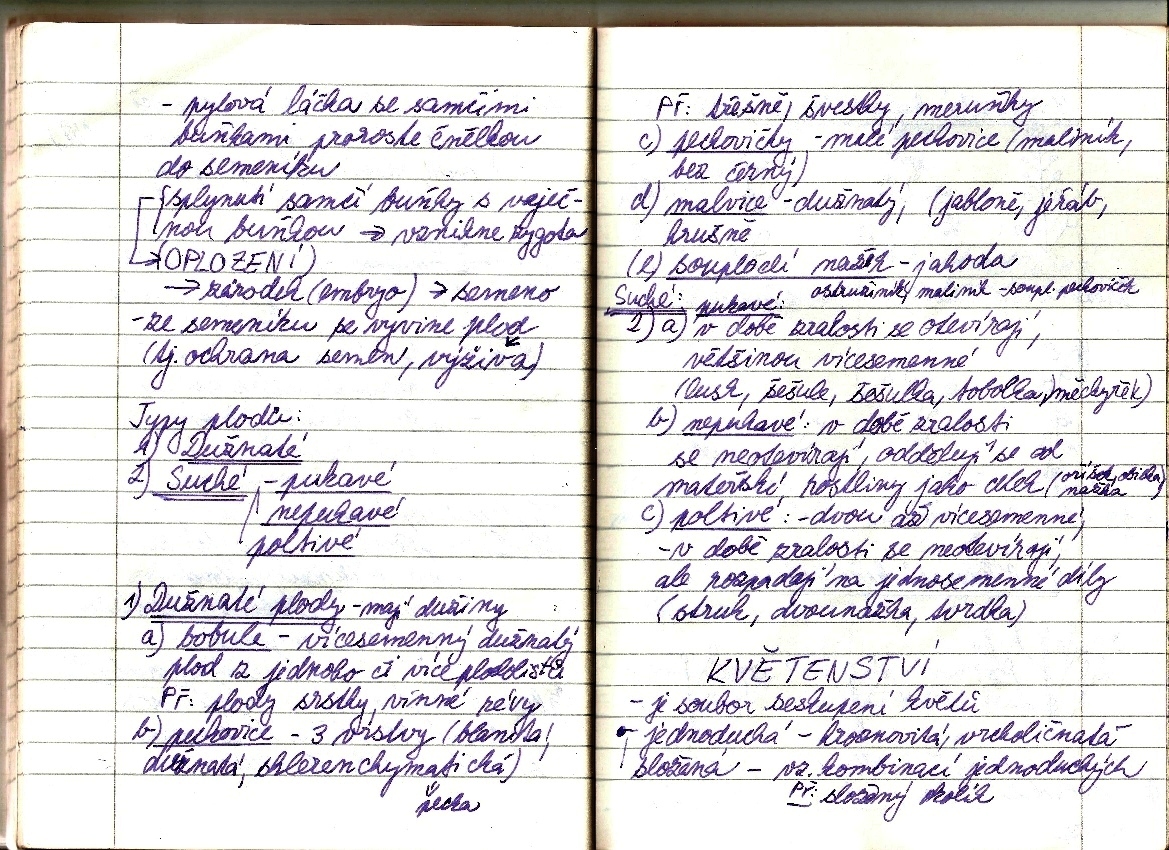 - pylová láčka se samčími
buňkami proroste čnělkou
do semeníku
splynutí samčí buňky s vaječ-
nou buňkou → vznikne zygota
→ (OPLOZENÍ)
→ zárodek (embryo) → semeno
- ze semeníku se vyvine plod
(tj. ochrana semen, výživa)
Typy plodů:
1) Dužnaté
2) Suché - pukavé
nepukavé
poltivé
1) Dužnaté plody - mají dužiny
a) bobule - vícesemenný dužnatý
plod z jednoho či více plodolistů
Př: plody srstky, vinné révy
b) peckovice - 3 vrstvy (blanitá,
dužnatá, sklerenchymatická)
pecka
Př: třešně, švestky, meruňky
c) peckovičky - malé peckovice (maliník,
bez černý)
d) malvice - dužnatý, (jabloně, jeřáb,
hrušně
(e) souplodí nažek - jahoda
ostružiník, maliník - soupl. peckoviček
Suché: pukavé:
2) a) v době zralosti se otevírají,
většinou vícesemenné
(lusk, šešule, šešulka, tobolka, měchýřek)
b) nepukavé: v době zralosti
se neotevírají, oddělují se od
mateřské rostliny jako celek (oříšek, obilka,
nažka
c) poltivé: - dvou až vícesemenné,
- v době zralosti se neotevírají,
ale rozpadají na jednosemenné díly
(struk, dvounažka, tvrdka)
KVĚTENSTVÍ
- je soubor seskupení květů
jednoduchá - hroznovitá, vrcholičnatá
složená - vz. kombinací jednoduchých
Př: složený okolík